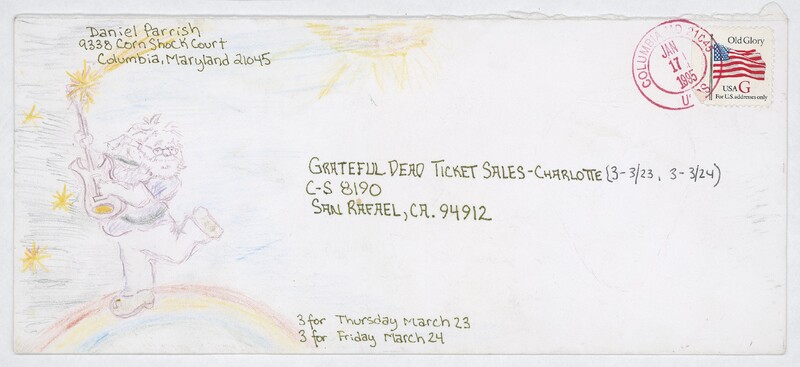 Daniel Parrish
9338 Corn Shock Court
Columbia, Maryland 21045
COLUMBIA MD 21045
JAN
17
1995
USPS
Old Glory
USA G
For U.S. addresses only
GRATEFUL DEAD TICKET SALES-CHARLOTTE (3-3/23, 3-3/24)
C-S 8190
SAN RAFAEL, CA. 94912
3 for Thursday March 23
3 for Friday March 24